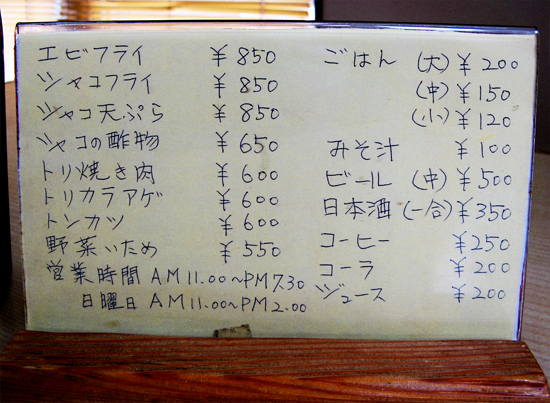 エビフライ ¥850
シャコフライ ¥850
シャコ天ぷら ¥850
シャコの酢物 ¥650
トリ焼き肉 ¥600
トリカラアゲ ¥600
トンカツ ¥600
野菜いため ¥550
営業時間 AM11.00~PM7.30
日曜日 AM11.00~PM2.00
ごはん (大) ¥200
(中) ¥150
(小) ¥120
みそ汁 ¥100
ビール (中) ¥500
日本酒 (一合) ¥350
コーヒー ¥250
コーラ ¥200
ジュース ¥200